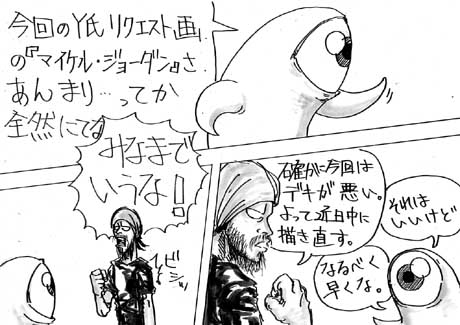 今回のY氏リクエスト画
の『マイケル・ジョーダン』さ、
あんまり…ってか
全然にてな
みなまで
いうな!
ビシッ
確かに今回は
デキが悪い。
よって近日中に
描き直す。
それは
いいけど
なるべく
早くな。